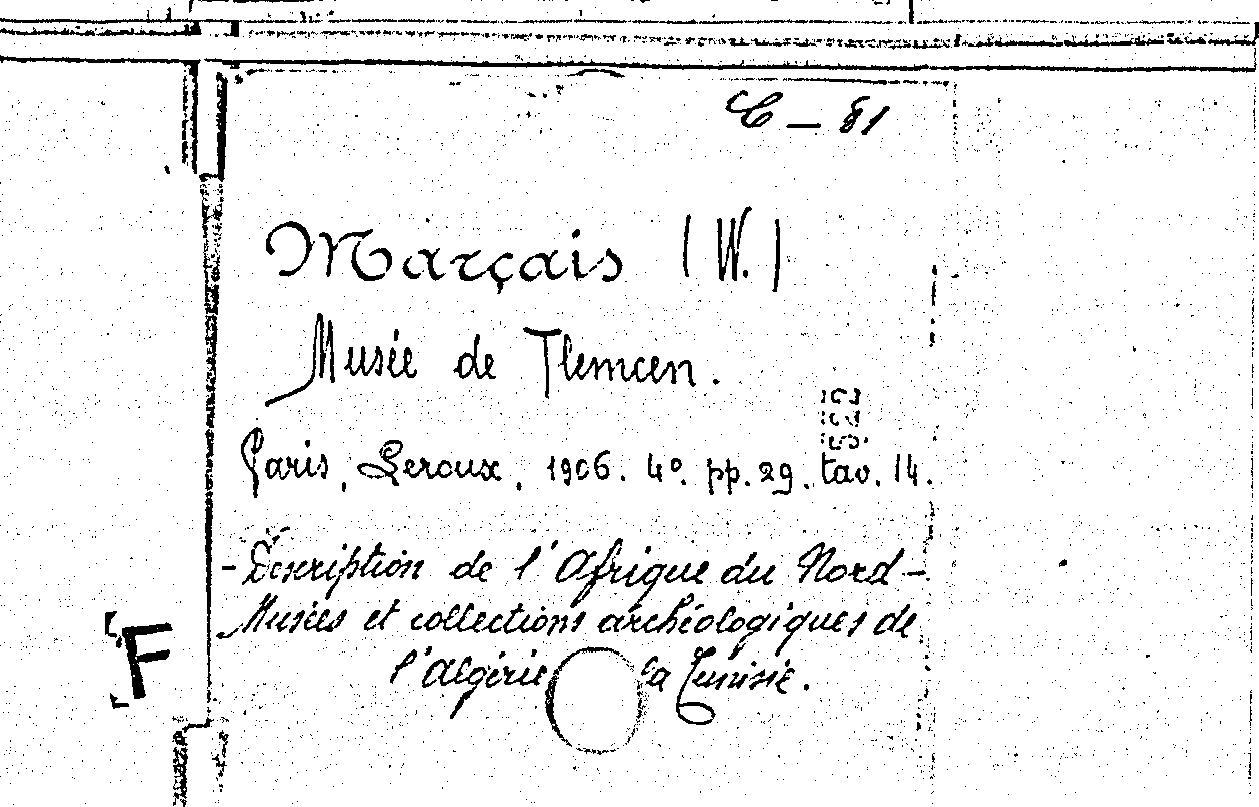 C - 81
Marçais (W.)
Musée de Tlemcen.
Paris, Leroux, 1906. 4º. pp. 29. tav. 14.
- Description de l'Afrique du Nord -
Musées et collections archéologiques de
l'Algérie la Tunisie.
F